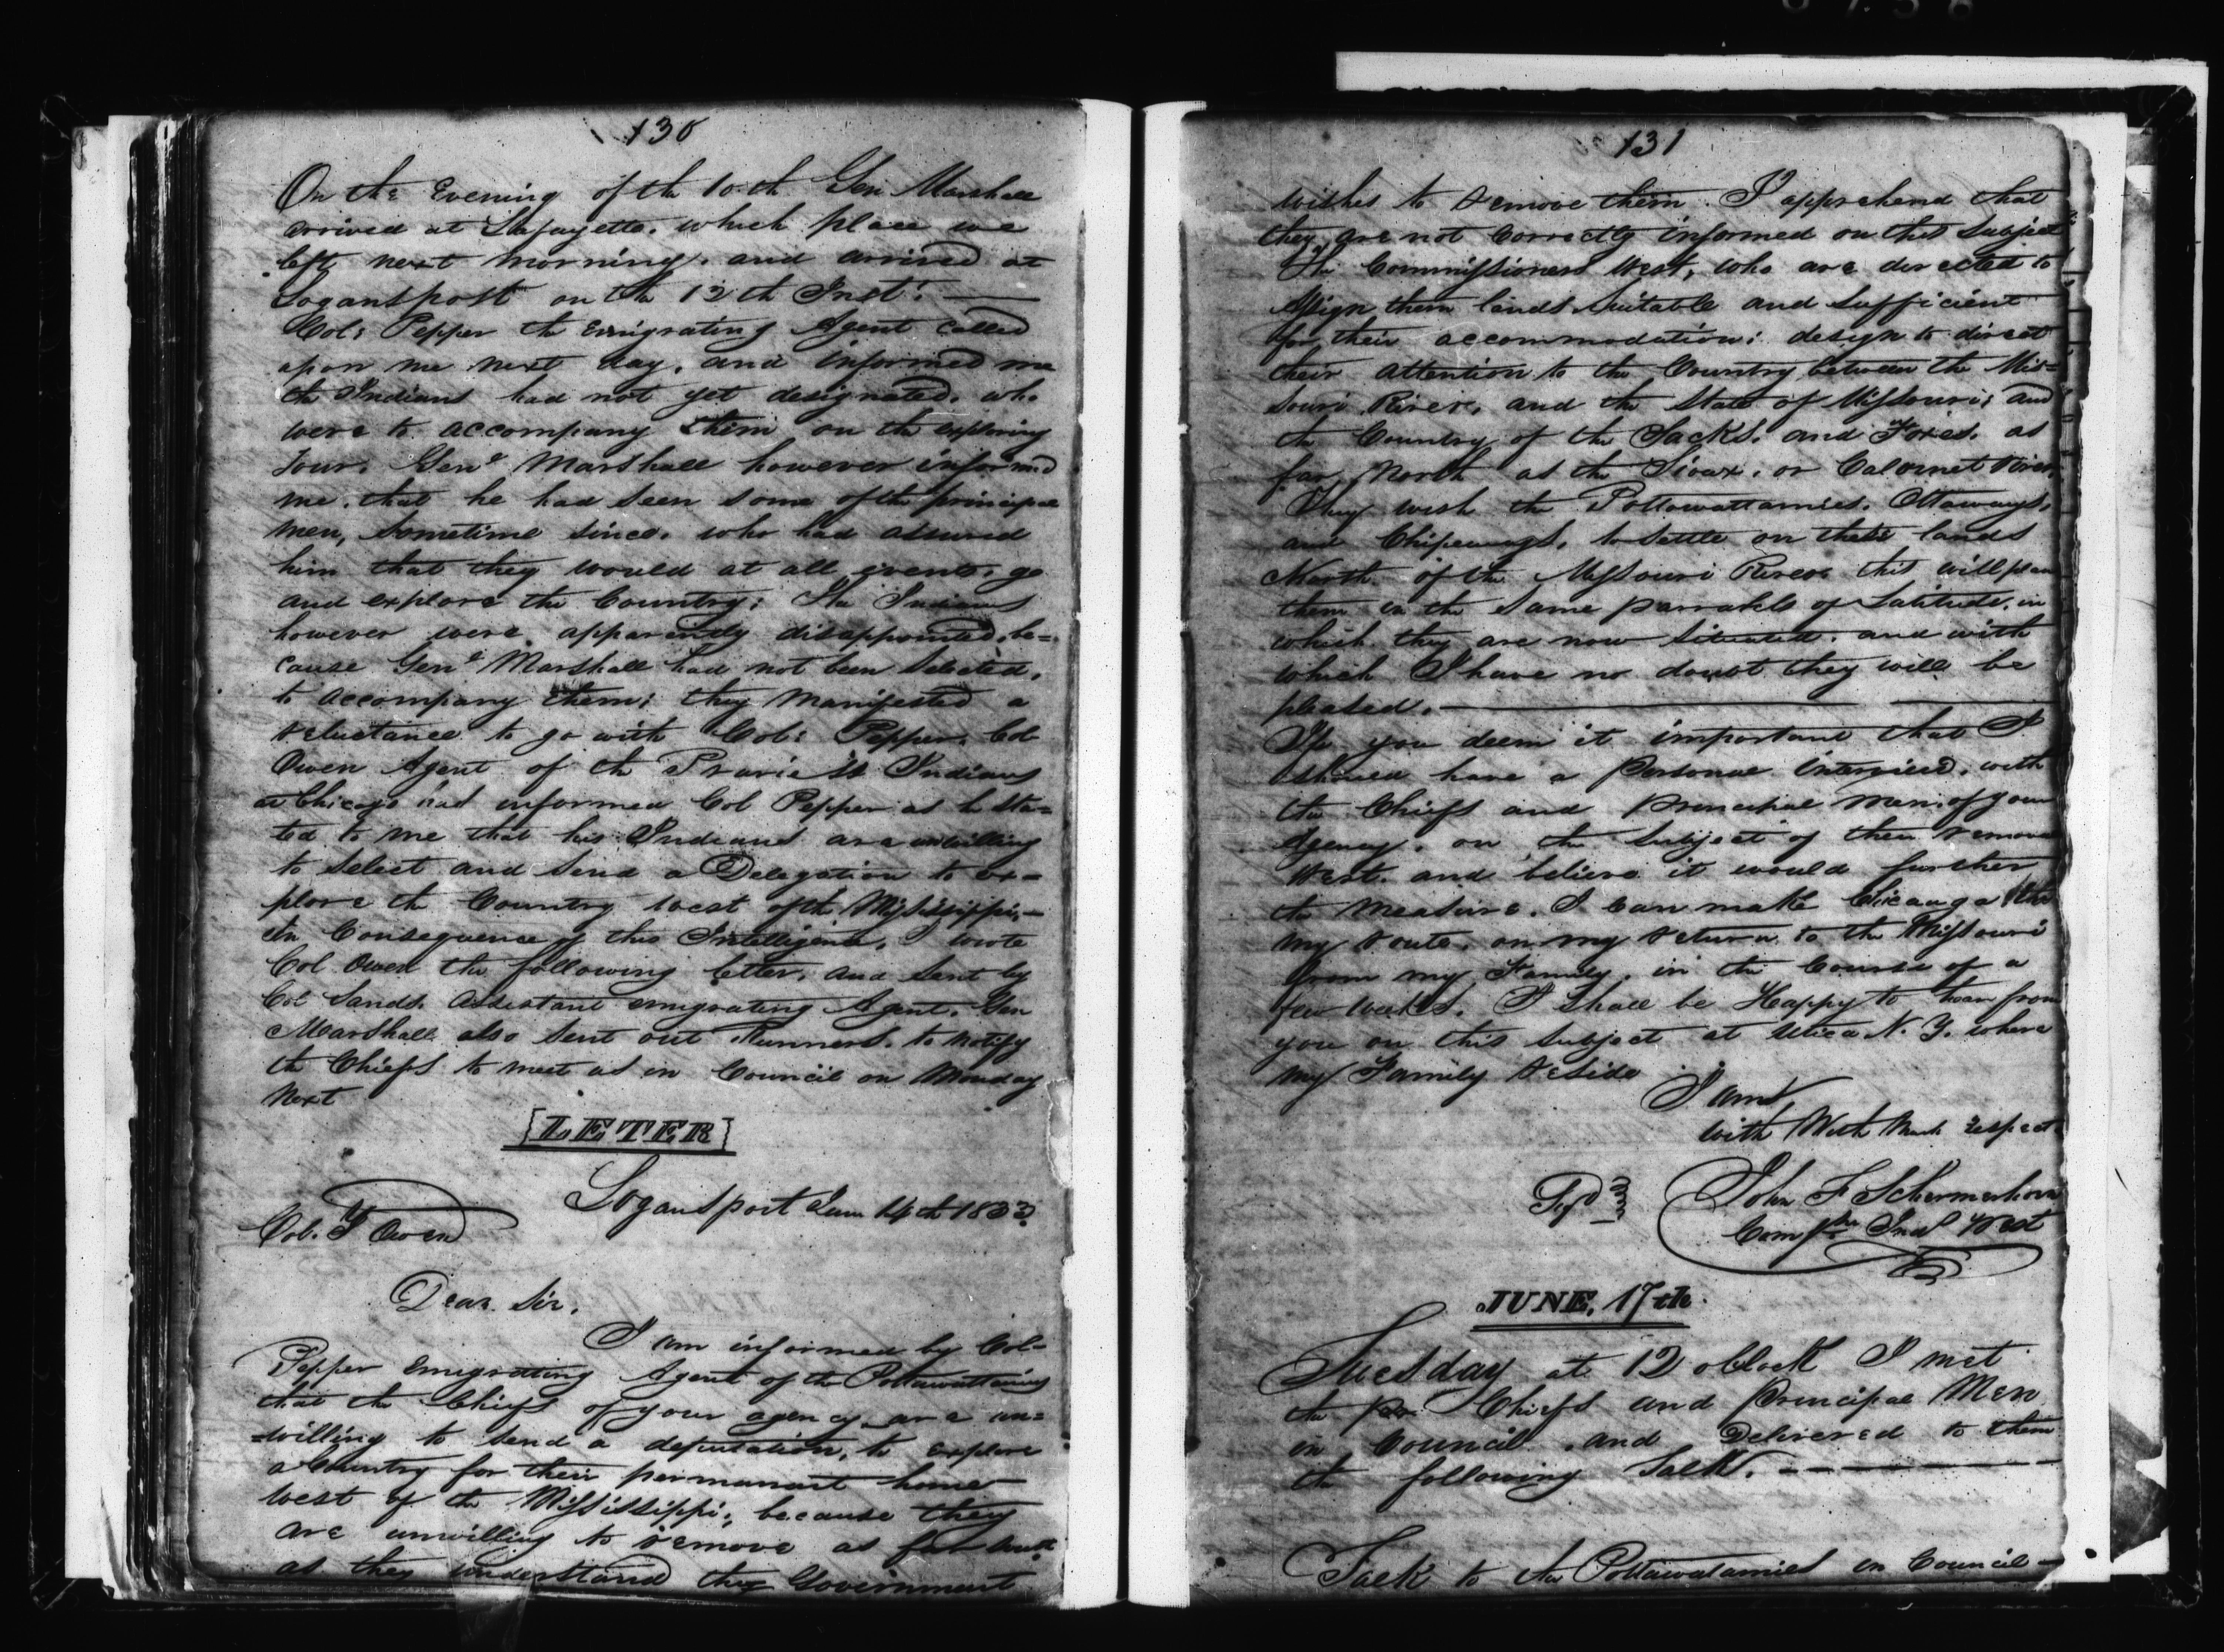 130
On the Evening of the 10th Gen Marshall
arrived at Lafayette. which place we
left next morning, and arrived at
Loganspost on the 12th Inst.
Col: Pepper the Emigrating Agent called
upon me next day, and informed me
the Indians had not yet designated, who
were to accompany them on the exploring
Tour. Genl Marshall however informed
me, that he had seen some of the principal
men, sometime since, who had assured
him that they would at all events, go
and explore the Country; The Indians
however were apparendy disappointed, be=
cause Genl Marshall had not been Selected,
to accompany them; they manifested a
reluctance to go with Col: Pepper. Col
Owen Agent of the Pravie Indians
at Chicago had informed Col Pepper as he sta=
ted to me that his Indians are unwilling
to select and send a Delegation to ex=
plore the Country west of the Mississippi,
In Consequence of this Intelligence, I wrote
Col. Owen the following letter, and sent by
Col Sands. Assistant emigrating Agent. Gen
Marshall also sent out Runners. to notify
the Chiefs to meet us in Council on Monday
Next
[LETER]
Logansport June 14th 1833
Col. T Owen
Dear. Sir.
I am informed by Col=
Pepper emigrating Agent of the Pottawattamies
that the Chiefs of your agency are un=
=willing to send a deputation, to explore
a Country for their permanant home
West of the Mississippi; because they
are unwilling to remove as far South
as they understand they Government
131
wishes to remove them. I apprehend that
they are not Correctly informed on this Subject
The Commissioners West, who are directed to
Assign them lands suitable and sufficient
for their accommodation; design to direct
their attention to the Country between the Mis=
souri River, and the State of Missouri; and
the Country of the Sacks. and Foxes. as
far North as the Sioux. or Calomet River
They wish the Pottowattamies. Ottaways.
and Chipeways. to settle on these lands
North of the Missouri River. this will place
them in the same parrallels of Latitude, in
which they are now Situated. and with
which I have no doubt they will be
pleased.
If you deem it important that I
should have a Personal Interview, with
the Chiefs and Principal Men. of your
Agency. on the Subject of their remove
West. and believe it would further
the measure. I can make Chicauga in
my route, on my return to the Missouri
from my Family, in the Course of a
few weeks. I shall be Happy to hear from
you on this Subject at Utica N. Y. where
my Family reside
I am
with With Much respect
John F Schermerhorn
Comr Ind West
JUNE, 17th.
Tuesday at 12 oClock I met
the Pr. Chiefs and Principal Men
in Council. and Delivered to them
the following Talk.
Talk to the Pottawatamies in Council